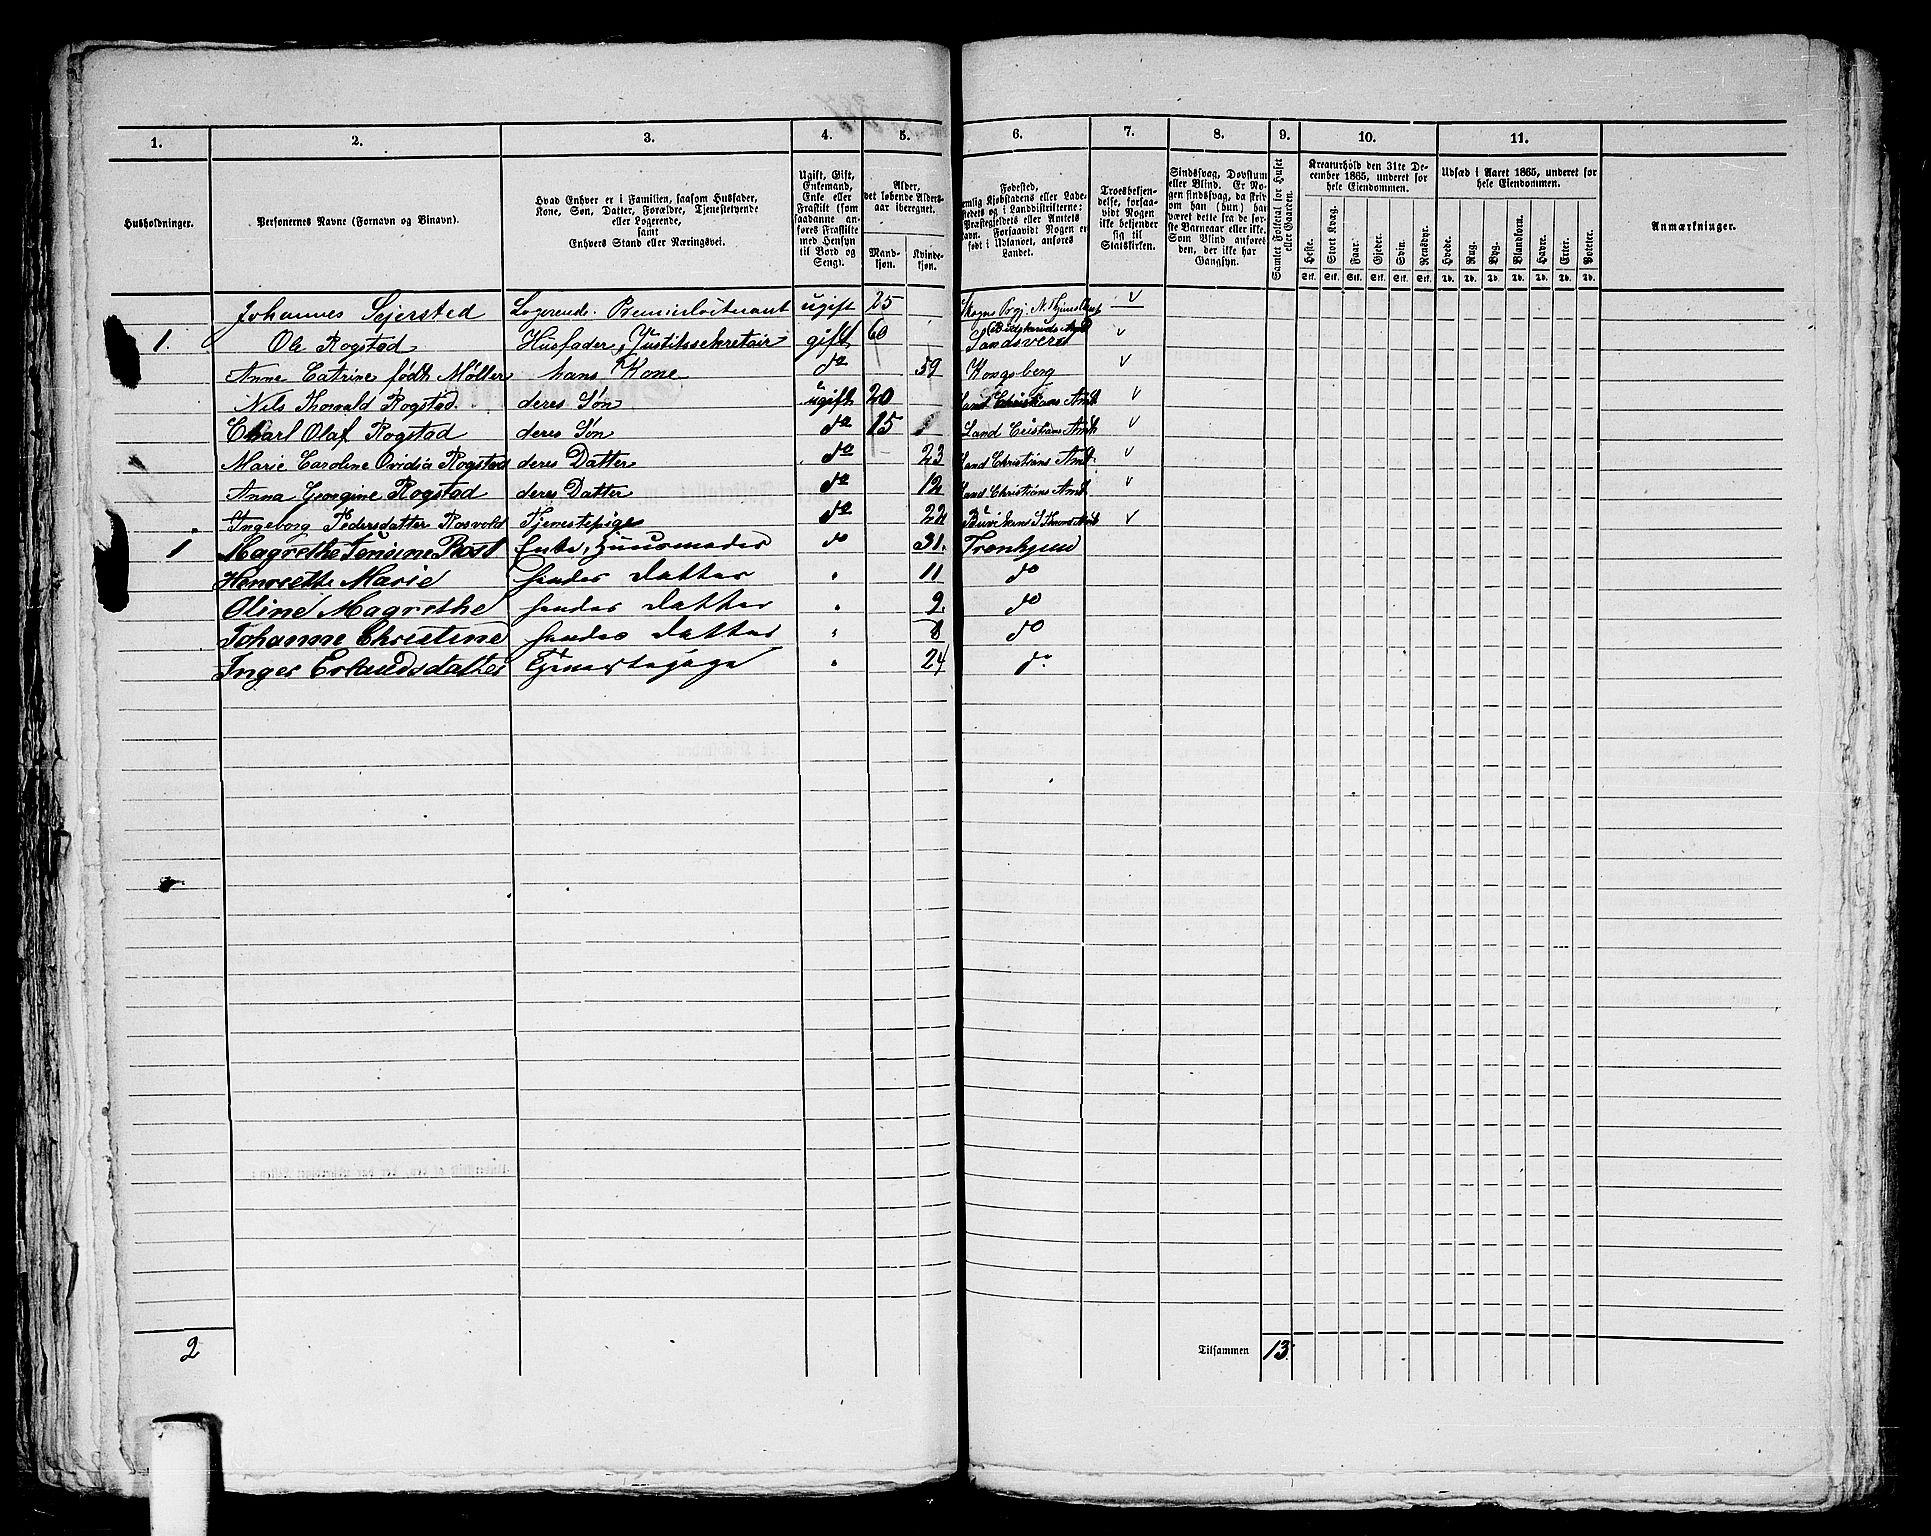 1. 2. 3. 4. 5. 6. 7. 8. 9. 10. 11.
Husholdninger.
Personernes Navne (Fornavn og Binavn).
Hvad Enhver er i Familien, saasom Husfader,
Kone, Søn, Datter, Forældre, Tjenestetyende
eller Logerende,
samt
Enhvers Stand eller Næringsvei.
Ugift, Gift,
Enkemand,
Enke eller
Fraskilt (som
saadanne an-
føres Fraskilte
med Hensyn
til Bord og
Seng).
Alder,
det løbende Alders-
aar iberegnet.
Mand-
kjøn.
Kvinde-
kjøn.
Fødested,
emlig Kjøbstadens eller Lade-
stedets og i Landdistrikterne:
Præstegjeldets eller Amtets
Navn. Forsaavidt Nogen er
født i Udlandet, anføres
Landet.
Troesbekjen-
delse, forsaa-
vidt Nogen
ikke bekjender
sig til
Statskirken.
Sindssvag, Døvstum
eller Blind. Er No-
gen sindssvag, da skriv
om han (hun) har
været dette fra de før-
ste Barneaar eller ikke.
Som Blind anføres
den, der ikke har
Gangsyn.
Samlet Folketal for Huset
eller Gaarden.
Kreaturhold den 31te De-
cember 1865, underet for
hele Eiendommen.
Heste. Stort Kvæg. Faar. Gjeder. Svin. Rensdyr.
Stk. Stk. Stk. Stk. Stk. Stk.
Udsæd i Aaret 1865, underet for
hele Eiendommen.
Hvede. Rug. Byg. Blandkorn. Havre. Erter. Poteter.
Td. Td. Td. Td. Td. Td. Td.
Anmærkninger.
Johannes Sejersted Logerende. Premierløitenant ugift 25 Skogns Prgj. N. Thjems Amt v
1. Ole Rogstad Husfader, Justitssekretair gift 60 Sandsverd Buskeruds Amt v
Anne Catrine født Møller hans Kone do 59 Kongsberg v
Nils Thorvald Rogstad. deres Søn ugift 20 Land Christians Amt v
Carl Olaf Rogstad deres Søn do 15 Land Cristians Amt v
Marie Caroline Ovidia Rogstad deres Datter do 23 Land Christians Amt v
Anna Georgine Rogstad deres Datter do 12 Land Christians Amt v
Ingeborg Pedersdatter Rosvold Tjenestepige do 22 Buviken S Throns Amt v
1 Magrethe Jensine Rost Enke, Huusmoder do 31. Tronhjem
Henrette Marie hendes Datter " 11 do
Oline Magrethe hendes Datter " 9. do
Johanne Christine hendes Datter " 8 do
Inger Erlandsdatter " 24 do
2
Tilsammen 13